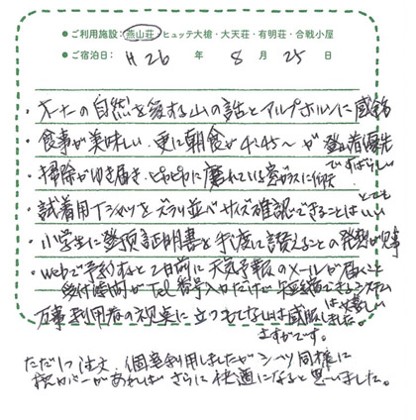 ● ご利用施設：燕山荘・ヒュッテ大槍・大天荘・有明荘・合戦小屋
● ご宿泊日： H26 年 8 月 25 日
・の自然を愛する山の話とアルプホルンに感銘
・食事が美味しい、更に朝食が4:45〜が登山者優先ですばらしい
・掃除がゆき届き、ピカピカに磨れている窓ガラスに仰天
・試着用Tシャツをズラリ並べサイズ確認できることはとてもいい
・小学生に登頂証明書を手渡し讃えることの発想が見事
・webで予約すると2日前に天気予報のメールが届くと
受付時間がTel番号入力だけで短縮できるシステムは嬉しい
万事利用者の視点に立つおもてなしは感服しました。
さすがです。
ただ1つ注文、個室利用しましたがシーツ同様に
枕カバーがあればさらに快適になると思いました。